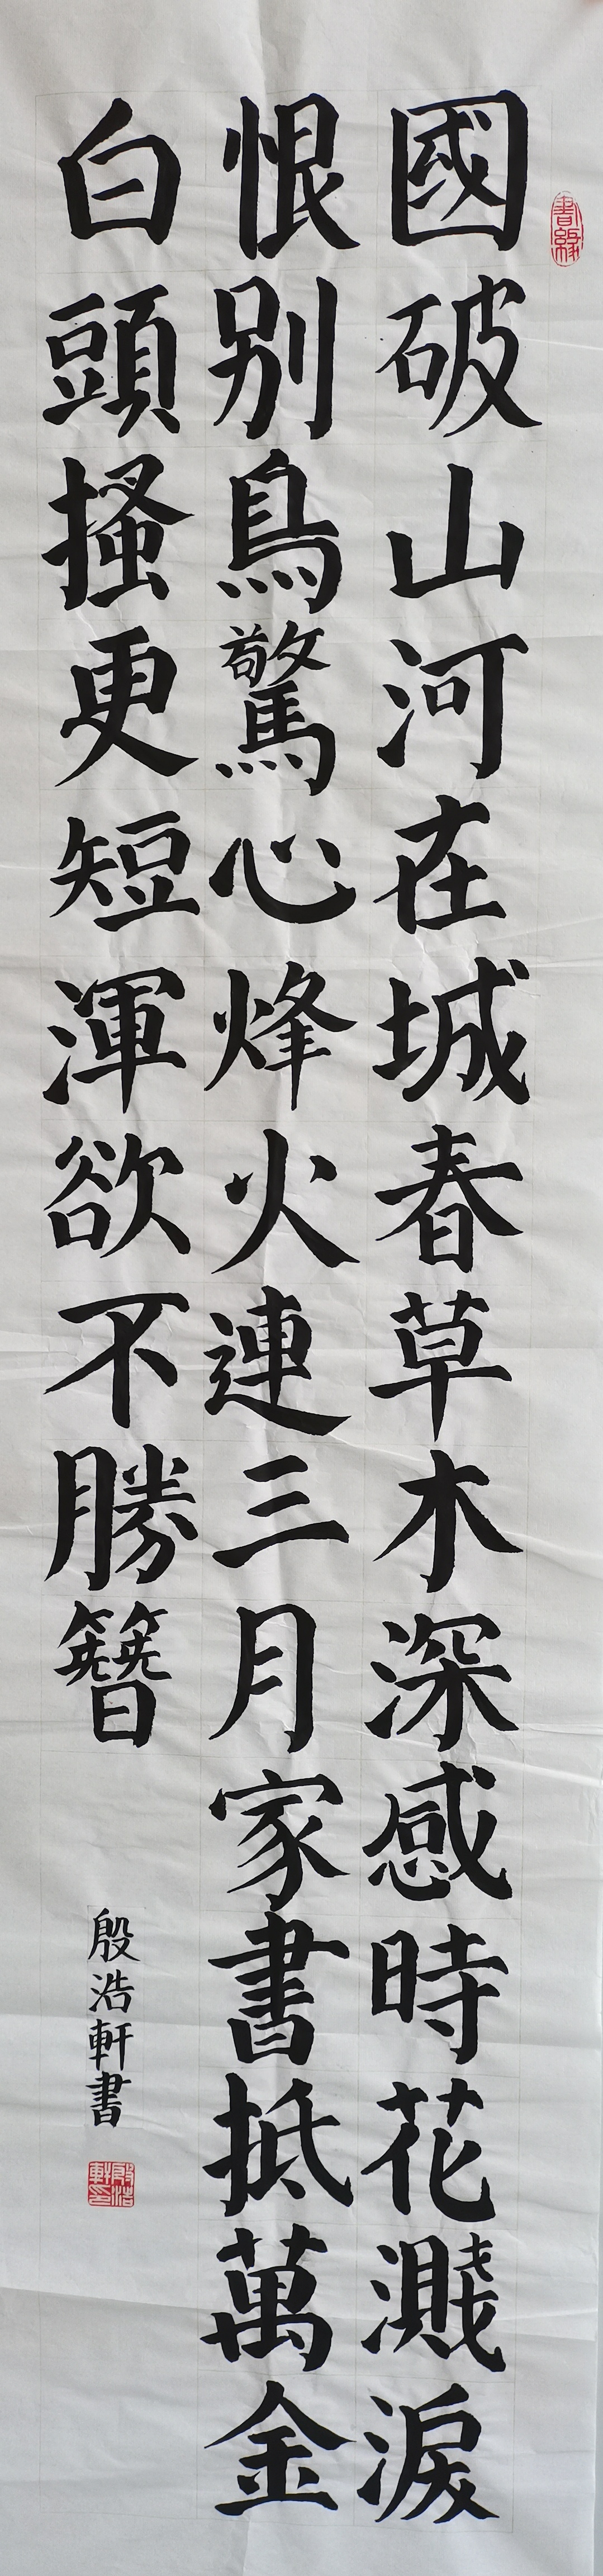 國破山河在城春草木深感時花濺淚
恨別鳥驚心烽火連三月家書抵萬金
白頭搔更短渾欲不勝簪
殷浩軒書
書緣
殷浩軒印